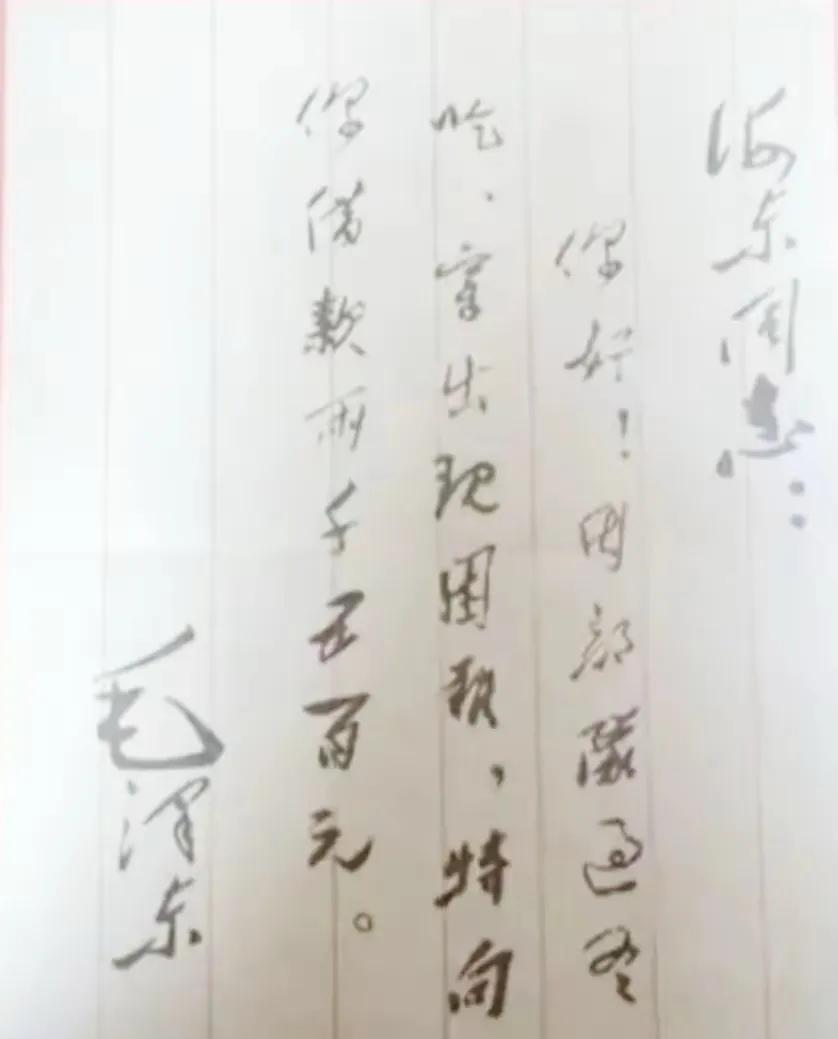 海东同志：
你好！因部队过冬
吃、穿出现困难，特向
你借款两千五百元。
毛泽东